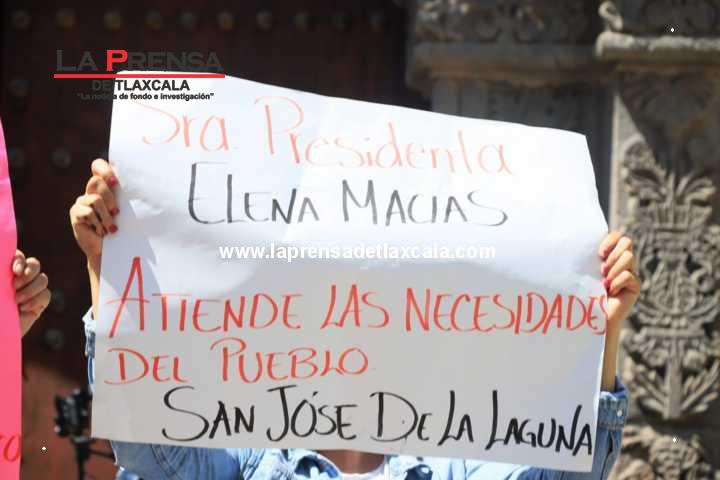 LA PRENSA
DE TLAXCALA
"La noticia de fondo e investigación"
Sra. Presidenta
ELENA MACIAS
www.laprensadetlaxcala.com
ATIENDE LAS NECESIDADES
DEL PUEBLO.
SAN JÓSE DE LA LAGUNA